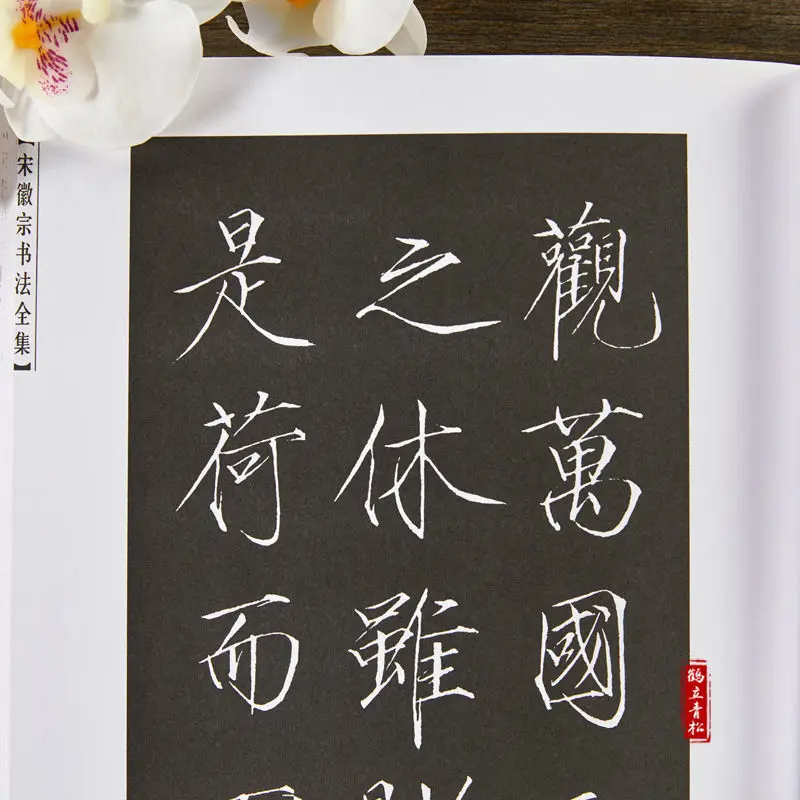 觀萬國
之休雖
是荷而
【宋徽宗书法全集】
鹤立青松